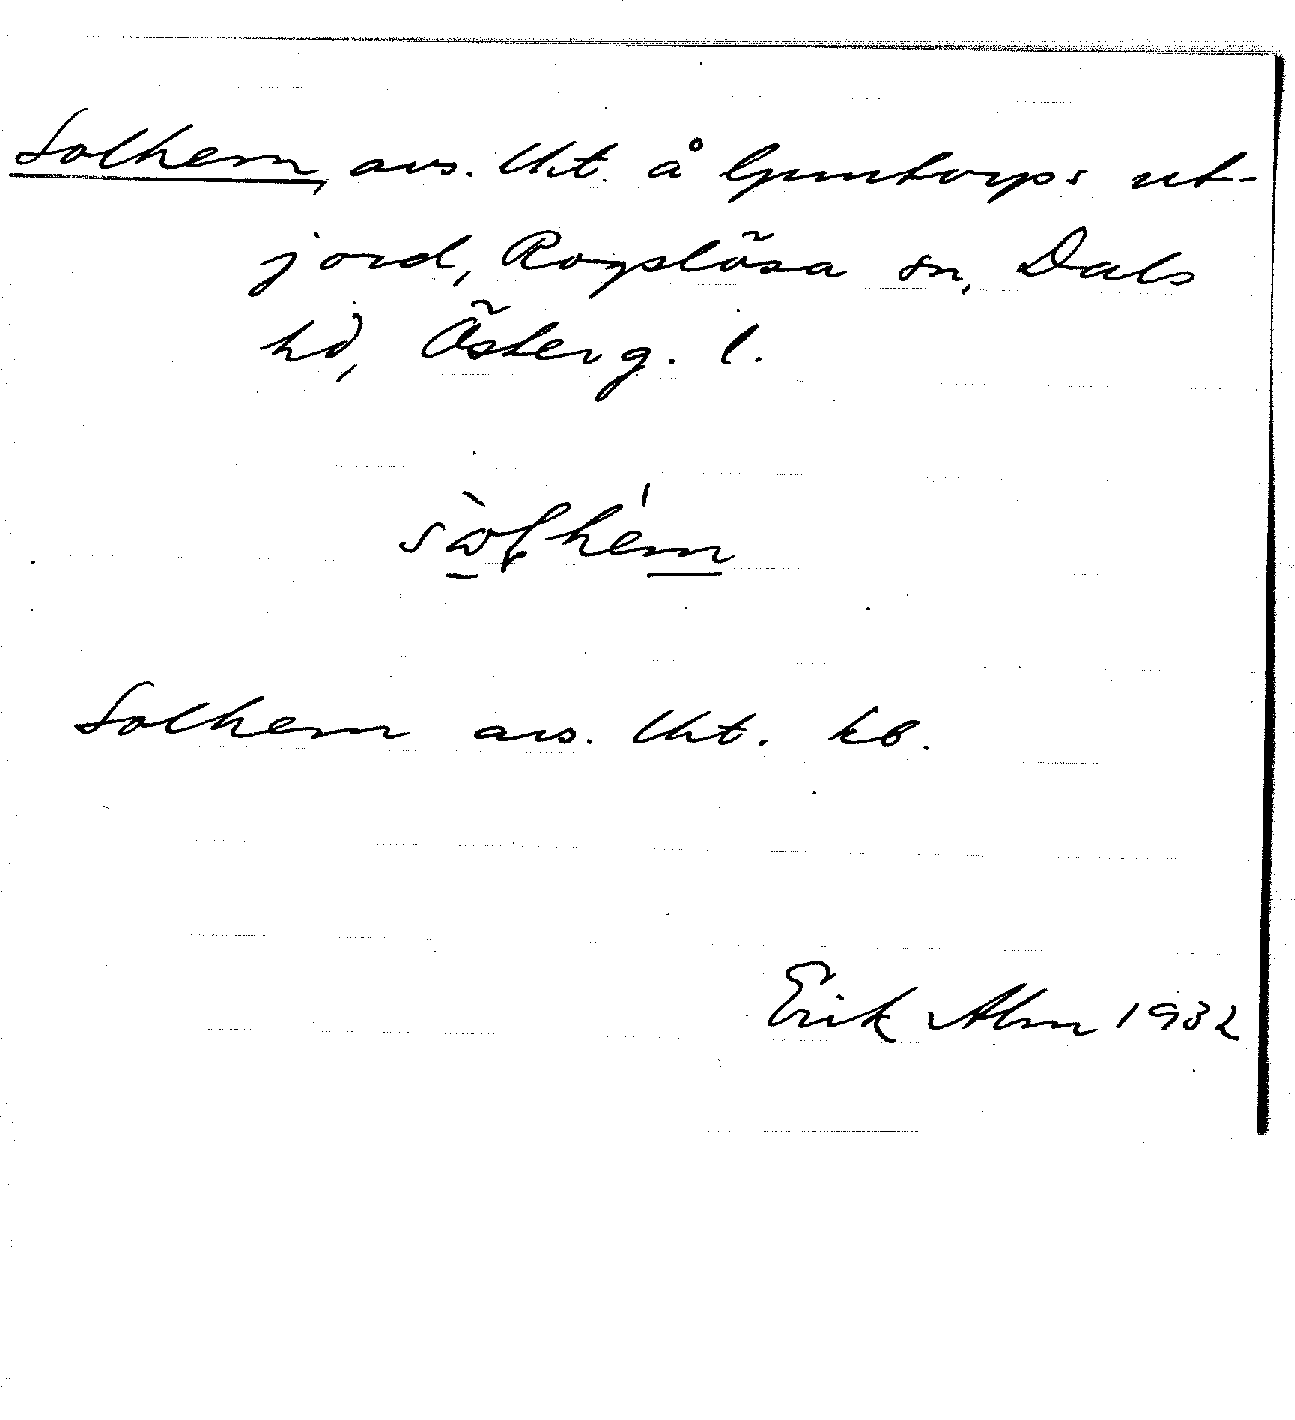 Solhem, avs. lht. å Ljuntorps ut-
jord, Rogslösa sn, Dals
hd, Österg. l.
Solhem avs. lht. kb.
Erik Alm 1932